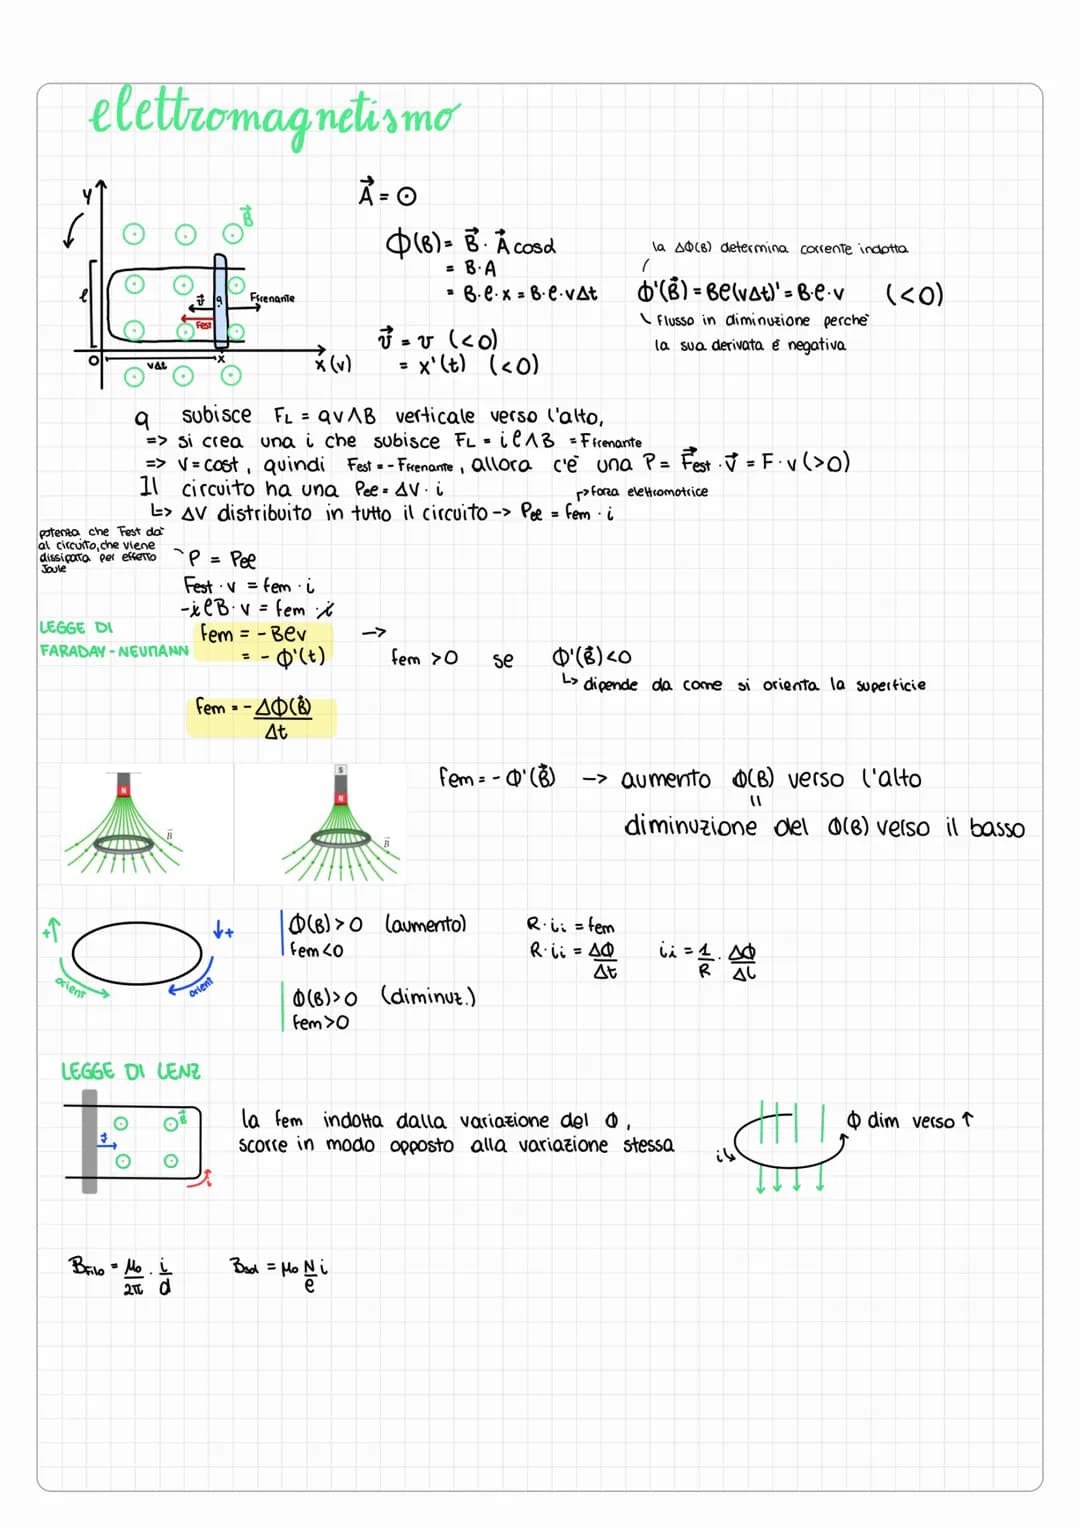 elettromagnetismo
y
B⃗
ℓ
v⃗
q
Ffrenante
Fest
O
vΔt
x
x (v)
A⃗ = ⊙
Φ(B) = B⃗ · A⃗ cosα
= B·A
= B·ℓ·x = B·ℓ·vΔt
la ΔΦ(B) determina corrente indotta
Φ'(B⃗) = Bℓ(vΔt)' = B·ℓ·v (<0)
flusso in diminuzione perchè
la sua derivata è negativa
v⃗ = v (<0)
= x'(t) (<0)
q subisce FL = qv∧B verticale verso l'alto,
=> si crea una i che subisce FL = iℓ∧B = Ffrenante
=> v = cost, quindi Fest = -Ffrenante, allora c'è una P = F⃗est · v⃗ = F·v (>0)
Il circuito ha una Pee = ΔV · i
forza elettromotrice
↳> ΔV distribuito in tutto il circuito -> Pee = fem · i
potenza che Fest dà
al circuito, che viene
dissipata per effetto
Joule
P = Pee
Fest · v = fem · i
-iℓB·v = fem · i
LEGGE DI
FARADAY-NEUMANN
fem = -Bℓv ->
= -Φ'(t)
fem >0 se Φ'(B⃗)<0
↳ dipende da come si orienta la superficie
fem = -ΔΦ(B⃗)
Δt
N
B⃗
S
N
B⃗
fem = -Φ'(B⃗) -> aumento Φ(B) verso l'alto
=
diminuzione del Φ(B) verso il basso
+↑
orient
↓+
orient
Φ(B)>0 (aumento)
fem<0
Φ(B)>0 (diminuz.)
fem>0
R·ii = fem
R·ii = ΔΦ
Δt
ii = 1/R · ΔΦ
Δt
LEGGE DI LENZ
B⃗
v⃗
i
la fem indotta dalla variazione del Φ,
scorre in modo opposto alla variazione stessa
i
Φ dim verso ↑
Bfilo = μ₀/2π · i/d
Bsol = μ₀ N/ℓ i